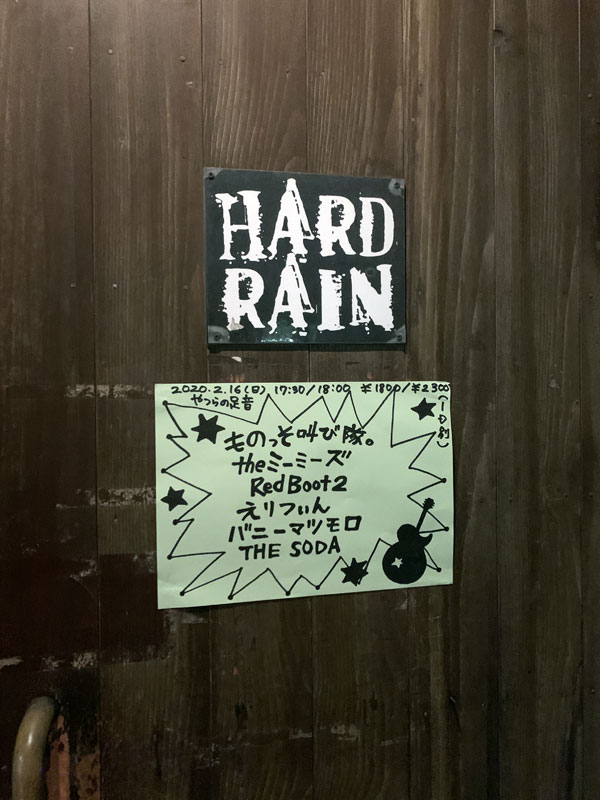 HARD
RAIN
2020.2.16(日) 17:30/18:00 ¥1800/¥2300
(1D別)
やつらの足音
ものっそ叫び隊。
theミーミーズ
RedBoot2
えりつぃん
バニーマツモロ
THE SODA